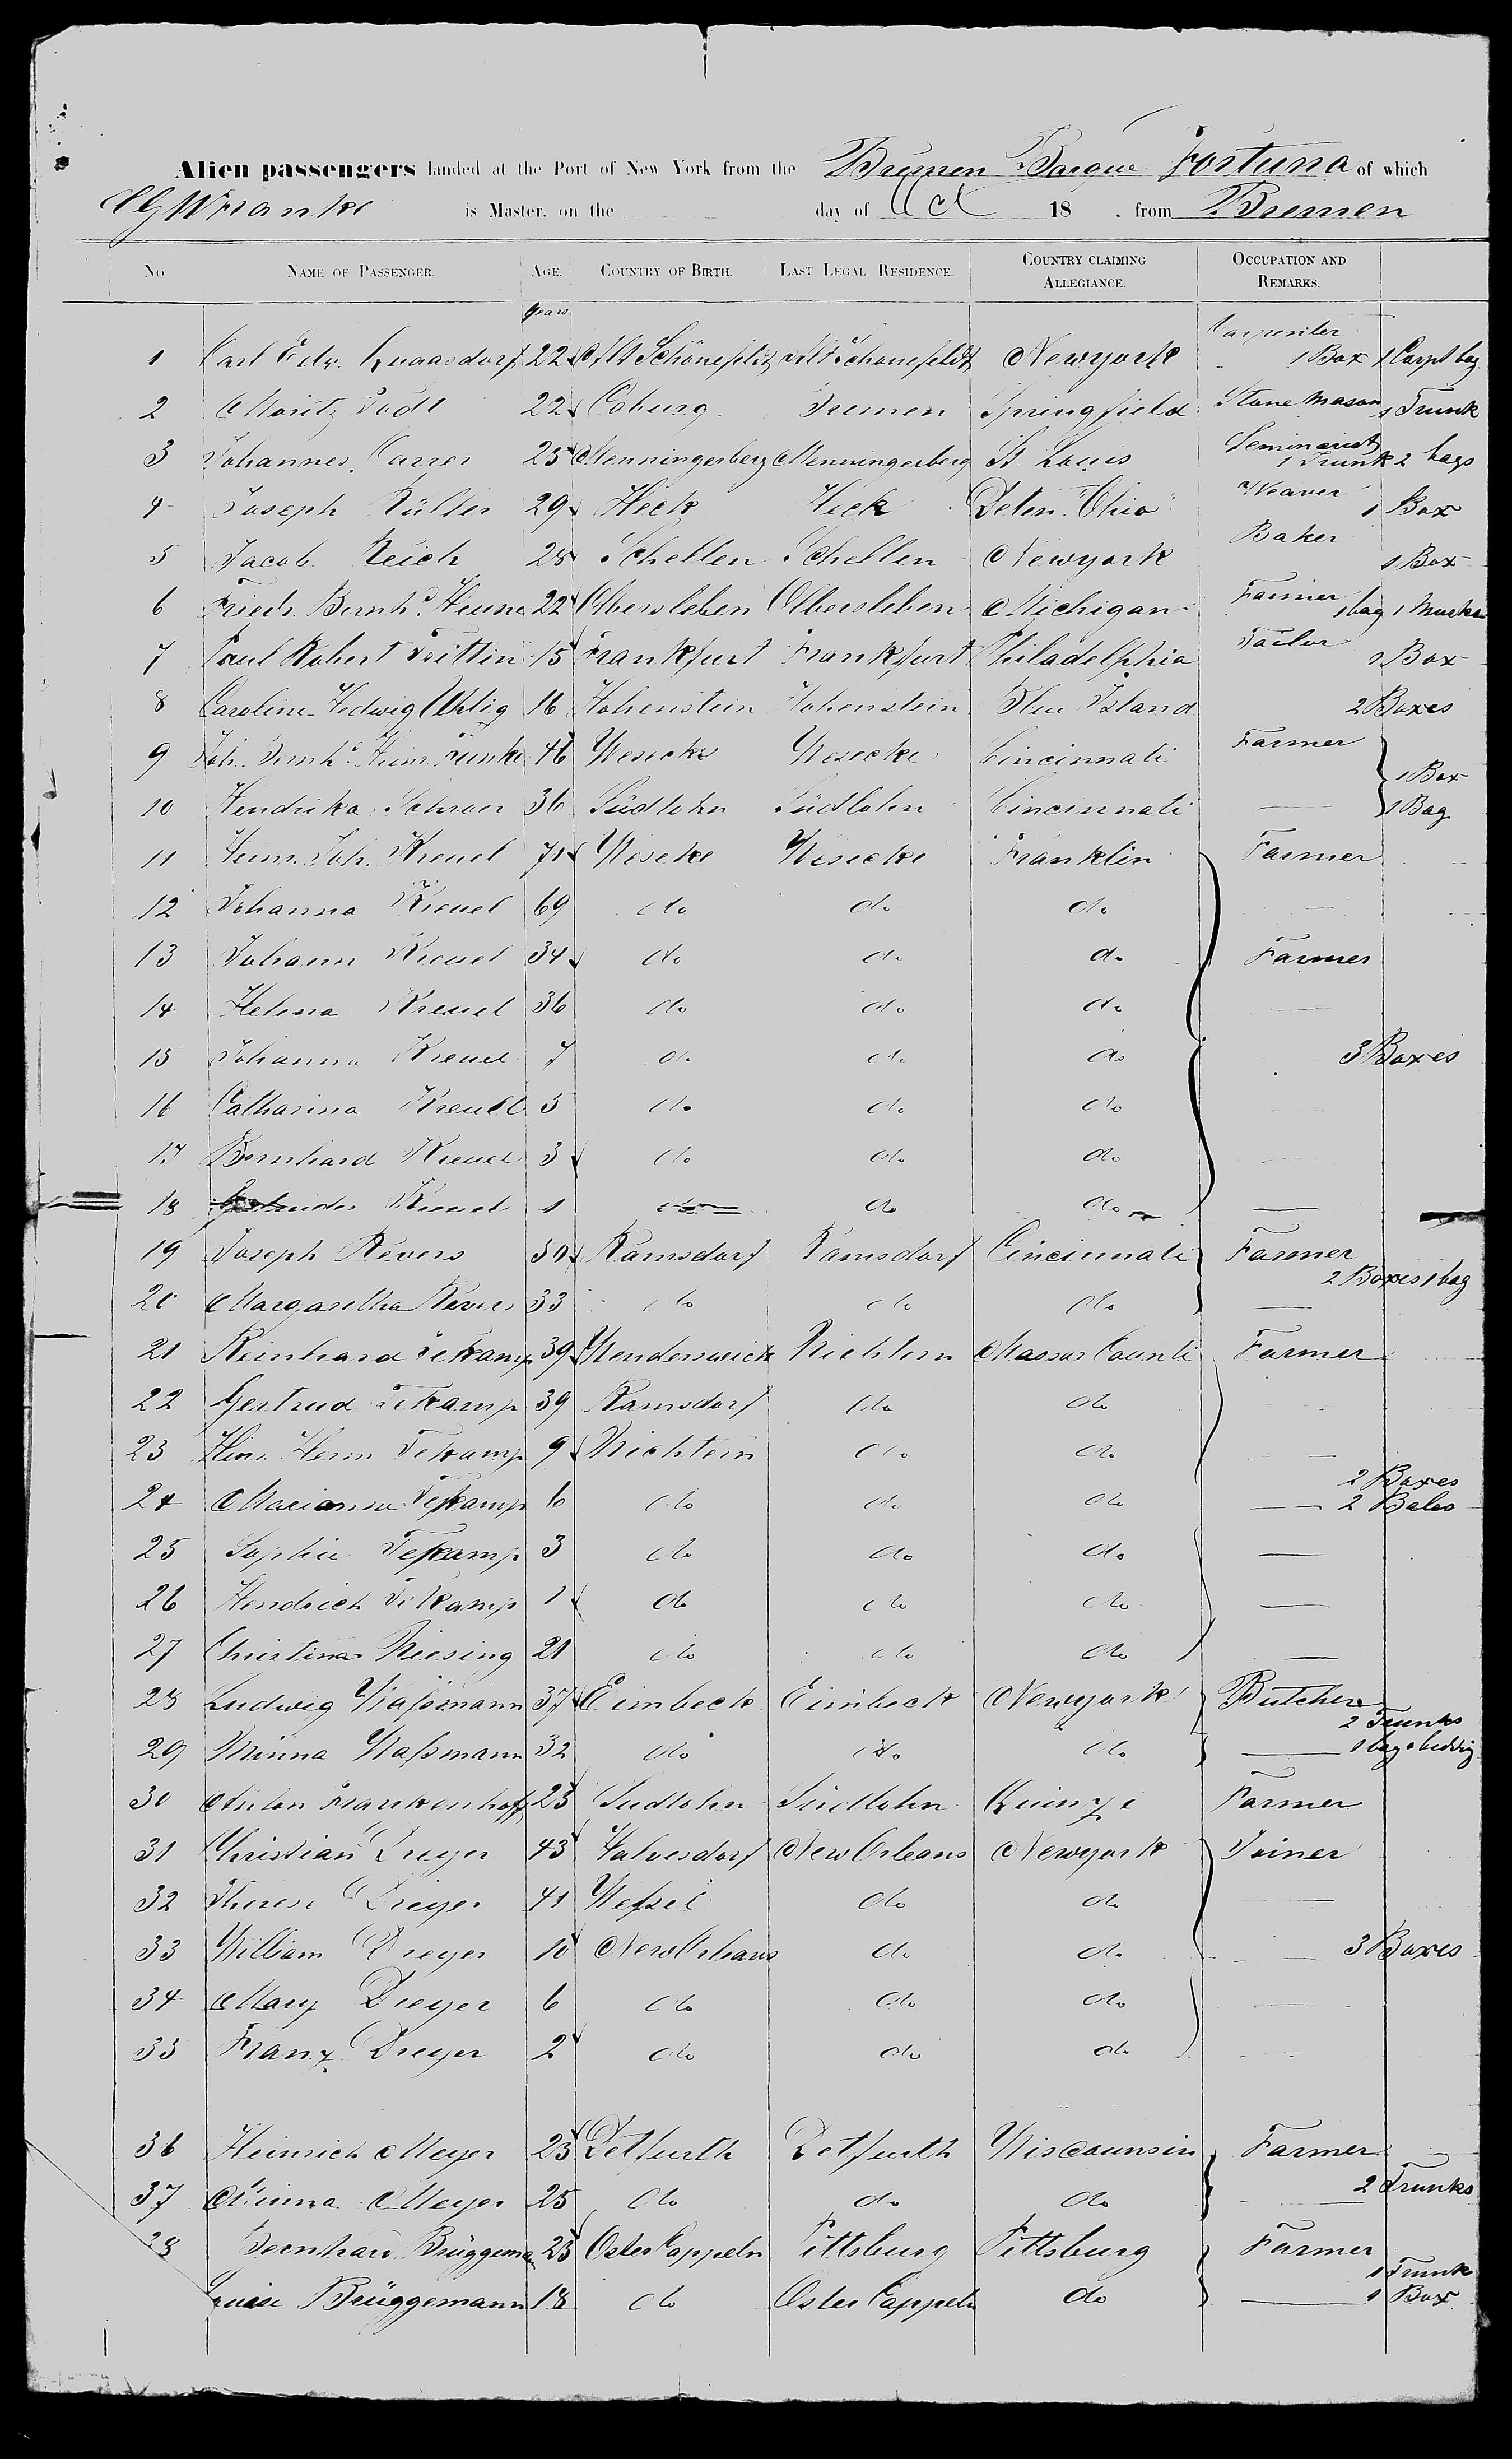 Alien passengers landed at the Port of New York from the Bremen Barque Fortuna of which
is Master. on the day of Oct 18 . from Bremen
No NAME OF PASSENGER. AGE. COUNTRY OF BIRTH. LAST LEGAL RESIDENCE. COUNTRY CLAIMING ALLEGIANCE. OCCUPATION AND REMARKS.
years
1 Carl Edw. Quaasdorf 22 Alt Schönefeld Alt Schönefeldt Newyork Carpenter 1 Box 1 Carpt bag
2 Moritz 22 Coburg Bremen Springfield Stone Mason 1 Trunk
3 Johannes 25 Menningerberg Menningerberg St. Louis Seminarist 1 Trunk 2 bags
4 Joseph 29 Heek Heek Ohio Weaver 1 Box
5 Jacob Reich 25 Schellen Schellen Newyork Baker 1 Box
6 Friedr. Bernhd. 22 Olbersleben Olbersleben Michigan Farmer 1 bag 1
7 Paul Robert Trittin 15 Frankfurt Frankfurt Philadelphia Tailor 1 Box
8 Caroline Hedwig Uhlig 16 Hohenstein Hohenstein Blue Island 2 Boxes
9 Joh. Bernhd. Heinr. Funke 46 Wesecke Wesecke Cincinnati Farmer 1 Box
10 Hendrika Schroer 36 Südlohn Südlohn Cincinnati — 1 Bag
11 Heinr. Joh. Kreuel 71 Weseke Wesecke Franklin Farmer
12 Johanna Kreuel 69 do do do —
13 Johann Kreuel 34 do do do Farmer
14 Helena Kreuel 36 do do do —
15 Johanna Kreuel 7 do do do 3 Boxes
16 Catharina Kreuel 5 do do do
17 Bernhard Kreuel 3 do do do —
18 Kreuel 1 do do do —
19 Joseph Revers 30 Ramsdorf Ramsdorf Cincinnati Farmer
2 Boxes 1 bag
20 Margaretha Revers 33 do do do —
21 Reinhard Tekamp 39 Wenderswick Nichtern Massar Counti Farmer
22 Gertrud Tekamp 39 Ramsdorf do do
23 Heinr. Herm Tekamp 9 Nichtern do do —
2 Boxes
24 Marianna Tekamp 6 do do do — 2 Bales
25 Sophie Tekamp 3 do do do —
26 Hendrich Tekamp 1 do do do —
27 Christina Niesing 21 do do do —
28 Ludwig Waßmann 37 Eimbeck Eimbeck Newyork Butcher
2 Trunks
29 Minna Waßmann 32 do do do — 1 bag bedding
30 Anton Frankenhoff 25 Sudlohn Südlohn Quinzi Farmer
31 Christian Dreyer 43 Halvesdorf New Orleans Newyork Joiner
32 Therese Dreyer 41 Weßel do do —
33 William Dreyer 10 New Orleans do do — 3 Boxes
34 Mary Dreyer 6 do do do —
35 Franz Dreyer 2 do do do —
36 Heinrich Meyer 25 Detfurth Detfurth Wiscounsin Farmer
37 Minna Meyer 25 do do do — 2 Trunks
38 Bernhard Brüggema 25 Oster Cappeln Pittsburg Pittsburg Farmer
1 Trunk
Luise Brüggemann 18 do Oster Cappeln do — 1 Box